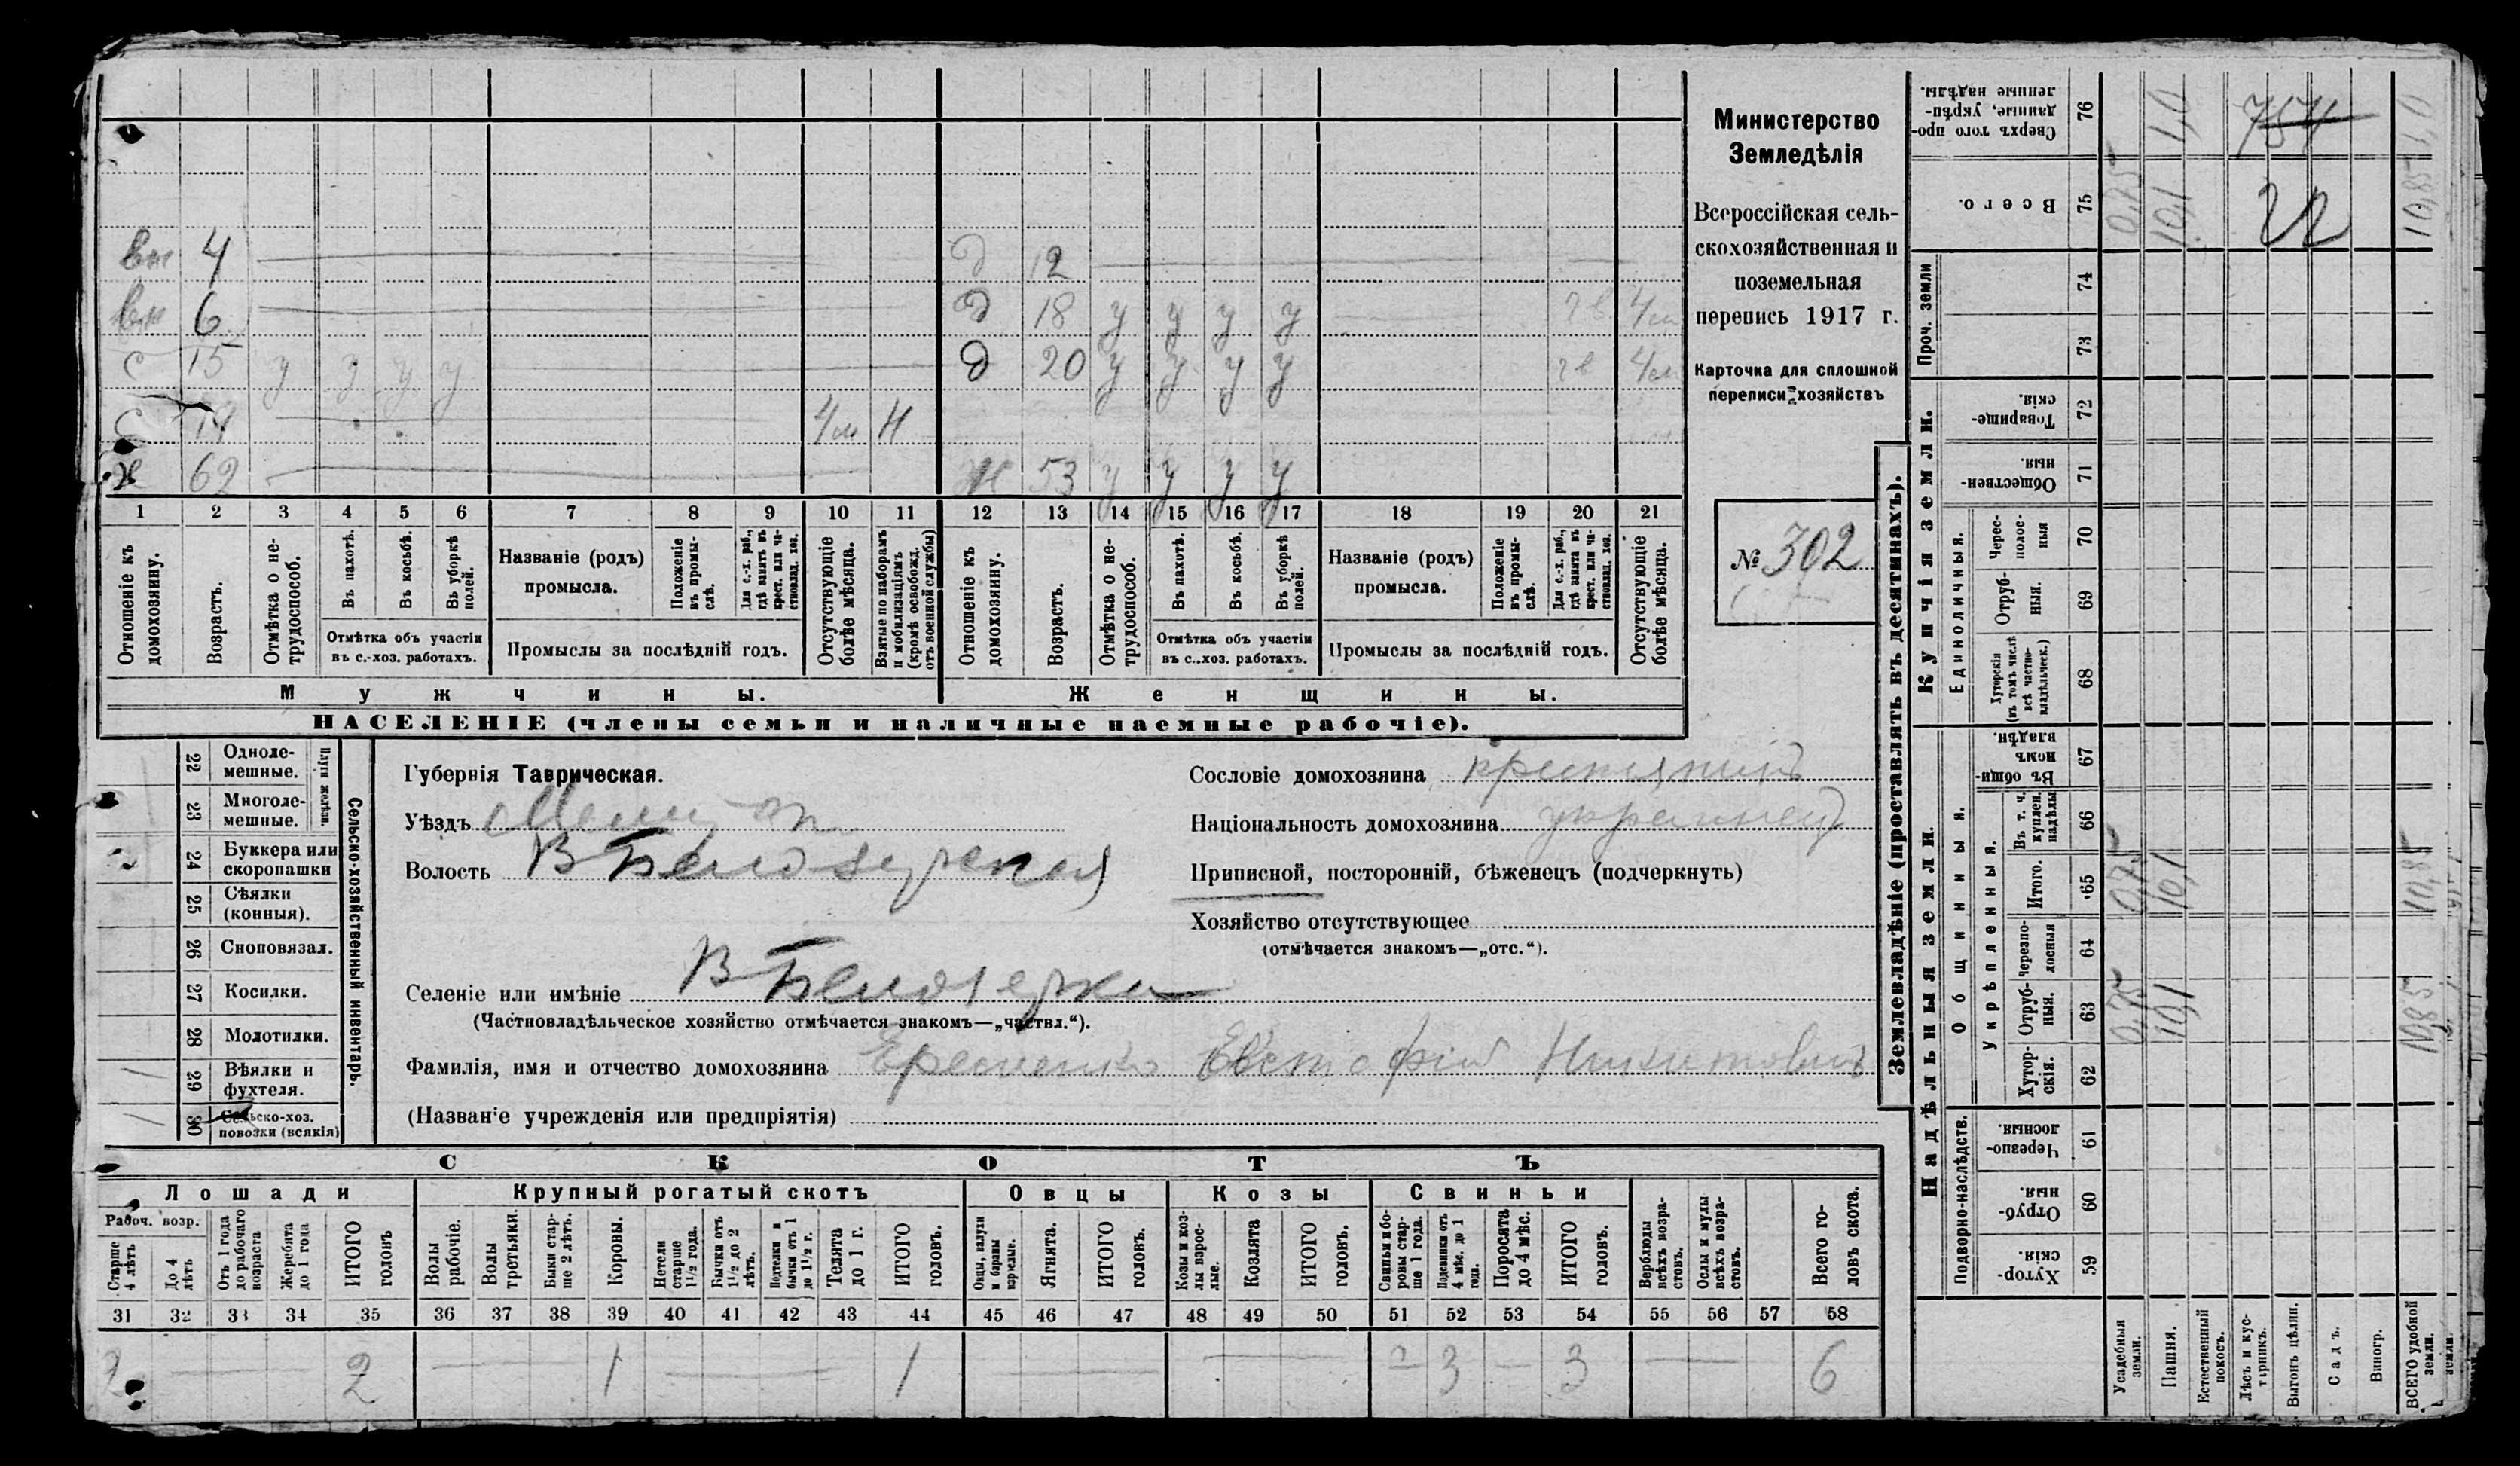 вн 4 — д 12 —
вн 6 — д 18 у у у у — 4 м
с 15 у у у у — д 20 у у у у 4 м
с 4 м Н
х 62 — ж 53 у у у у
1 2 3 4 5 6 7 8 9 10 11 12 13 14 15 16 17 18 19 20 21
Отношеніе къ домохозяину.
Возрастъ.
Отмѣтка о не-
трудоспособ.
Въ пахотѣ.
Въ косьбѣ.
Въ уборкѣ полей.
Отмѣтка объ участіи
въ с.-хоз. работахъ.
Названіе (родъ)
промысла.
Положеніе въ промы-
слѣ.
Для с.-х. раб., гдѣ занятъ въ крест. или ча-
стновлад. хоз.
Промыслы за послѣдній годъ.
Отсутствующіе болѣе мѣсяца.
Взятые по наборамъ и мобилизаціямъ (кромѣ освобожд. отъ военной службы)
Отношеніе къ домохозяину.
Возрастъ.
Отмѣтка о не-
трудоспособ.
Въ пахотѣ.
Въ косьбѣ.
Въ уборкѣ полей.
Отмѣтка объ участіи
въ с..хоз. работахъ.
Названіе (родъ)
промысла.
Положеніе въ промы-
слѣ.
Для с.-х. раб., гдѣ занятъ въ крест. или ча-
стновлад. хоз.
Промыслы за послѣдній годъ.
Отсутствующіе болѣе мѣсяца.
Мужчины. Женщины.
НАСЕЛЕНІЕ (члены семьи и наличные наемные рабочіе).
Министерство
Земледѣлія
Всероссійская сель-
скохозяйственная и
поземельная
перепись 1917 г.
Карточка для сплошной
переписи хозяйствъ
№ 302
22 Одноле-
мешные.
23 Многоле-
мешные.
Плуги желѣзн.
24 Буккера или
скоропашки
25 Сѣялки
(конныя).
26 Сноповязал.
27 Косилки.
28 Молотилки.
29 Вѣялки и
фухтеля.
30 Сельско-хоз.
повозки (всякія)
Сельско-хозяйственный инвентарь.
Губернія Таврическая.
Уѣздъ
Волость В Белозерская
Селеніе или имѣніе В Белозерка
(Частновладѣльческое хозяйство отмѣчается знакомъ—„частвл.“).
Фамилія, имя и отчество домохозяина Евстафій Никитовичъ
(Названіе учрежденія или предпріятія)
Сословіе домохозяина крестянинъ
Національность домохозяина украинец
Приписной, посторонній, бѣженецъ (подчеркнуть)
Хозяйство отсутствующее
(отмѣчается знакомъ—„отс.“).
СКОТЪ
Лошади Крупный рогатый скотъ Овцы Козы Свиньи
Рабоч. возр.
Старше 4 лѣтъ
До 4 лѣтъ
Отъ 1 года до рабочаго возраста
Жеребята до 1 года
ИТОГО головъ
Волы рабочіе.
Волы третьяки.
Быки стар-
ше 2 лѣтъ.
Коровы.
Нетели старше 1½ года.
Бычки отъ 1½ до 2 лѣтъ.
Подтелки и бычки отъ 1 до 1½ г.
Телята до 1 г.
ИТОГО головъ.
Овцы, валухи и бараны взрослые.
Ягнята.
ИТОГО головъ.
Козы и коз-
лы взрос-
лые.
Козлята
ИТОГО головъ.
Свиньи и бо-
ровы стар-
ше 1 года.
Подсвинки отъ 4 мѣс. до 1 года.
Поросята до 4 мѣс.
ИТОГО головъ.
Верблюды всѣхъ возра-
стовъ.
Ослы и мулы всѣхъ возра-
стовъ.
Всего го-
ловъ скота.
31 32 33 34 35 36 37 38 39 40 41 42 43 44 45 46 47 48 49 50 51 52 53 54 55 56 57 58
2 — 2 — 1 — 1 — — 3 — 3 — 6
Землевладѣніе (проставлять въ десятинахъ).
Надѣльныя земли. Купчія земли. Проч. земли
Подворно-наслѣдств.
Общинныя.
Укрѣпленныя.
Единоличныя.
59 Хутор-
скія.
60 Отруб-
ныя.
61 Черезпо-
лосныя
62 Хутор-
скія.
63 Отруб-
ныя. 0,75 10,1 10,85
64 Черезпо-
лосныя
65 Итого. 0,75 10,1 10,85
66 Въ т. ч. куплен. надѣлы
67 Въ общи-
номъ владѣн.
68 Хуторскія (въ томъ числѣ всѣ частно-
владѣльческ.)
69 Отруб-
ныя.
70 Черес-
полос-
ныя
71 Обществен-
ныя.
72 Товарище-
скія.
73
74
75 Всего. 0,75 10,1 22 10,85
76 Сверхъ того про-
данные, укрѣп-
ленные надѣлы. 1,0 754 1,0
Усадебныя земли.
Пашня.
Естественный покосъ.
Лѣсъ и кус-
тарникъ.
Выгонъ цѣлин.
Садъ.
Виногр.
ВСЕГО удобной земли.